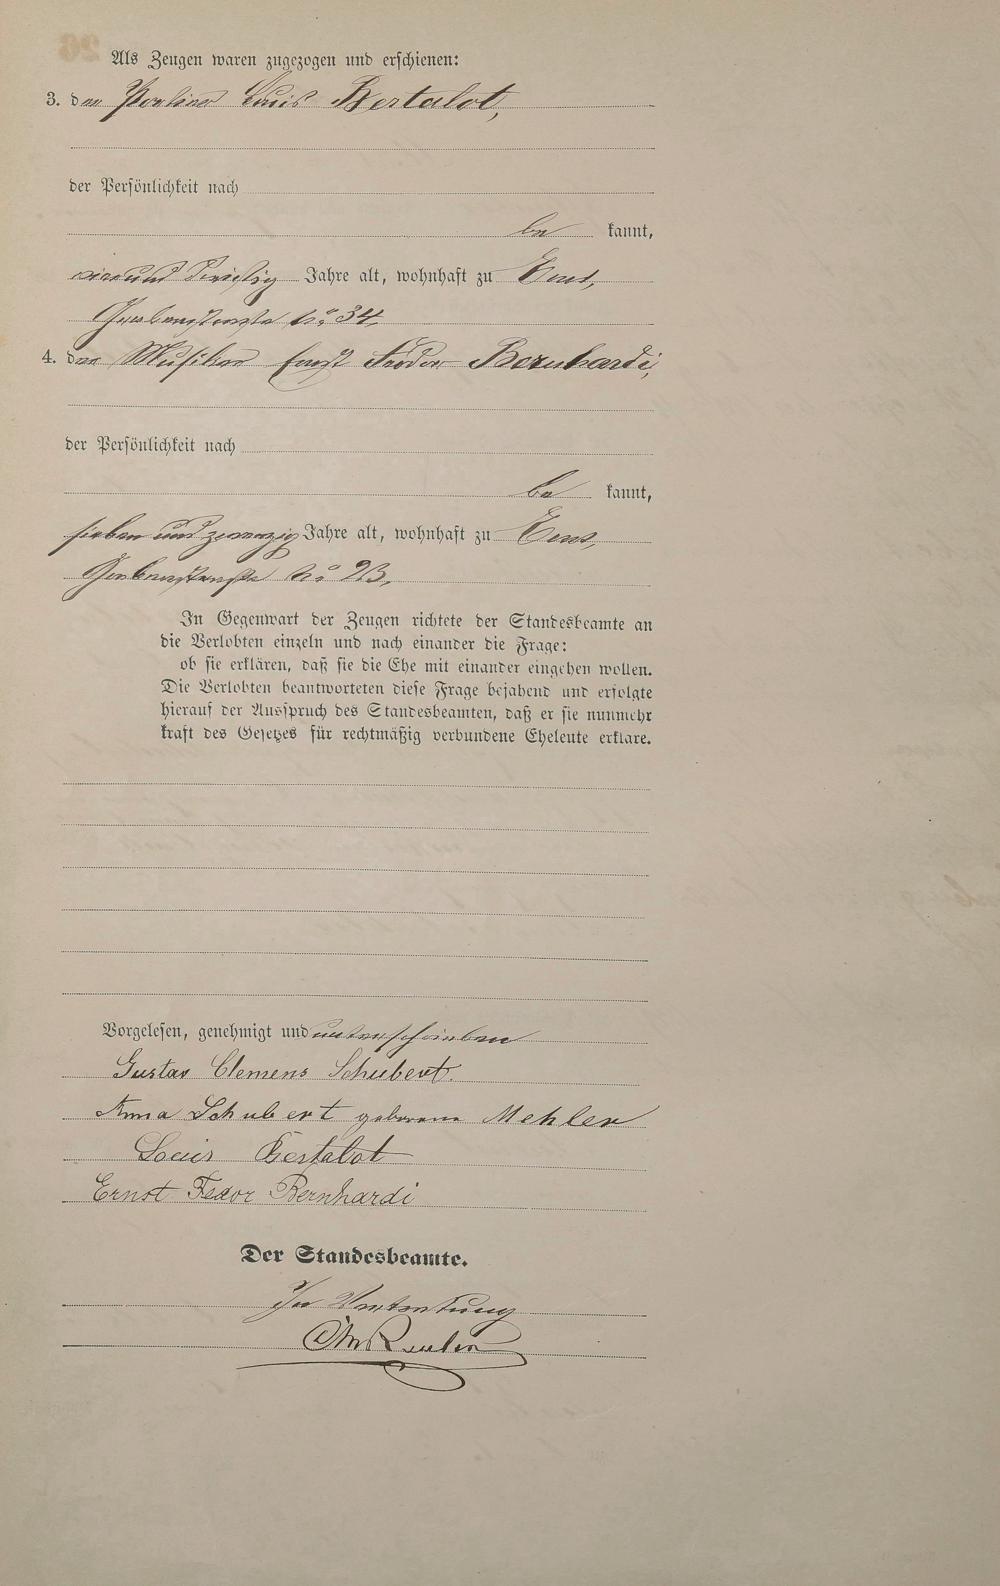 Als Zeugen waren zugezogen und erschienen:
3. der Portier Louis Bertalot,
der Persönlichkeit nach
be kannt,
vierund dreißig Jahre alt, wohnhaft zu Ems,
Grabenstraße No 34.
4. der Musiker Ernst Fedor Bernhardi,
der Persönlichkeit nach
be kannt,
sieben und zwanzig Jahre alt, wohnhaft zu Ems,
Grabenstraße No 23.
In Gegenwart der Zeugen richtete der Standesbeamte an
die Verlobten einzeln und nach einander die Frage:
ob sie erklären, daß sie die Ehe mit einander eingehen wollen.
Die Verlobten beantworteten diese Frage bejahend und erfolgte
hierauf der Ausspruch des Standesbeamten, daß er sie nunmehr
kraft des Gesetzes für rechtmäßig verbundene Eheleute erkläre.
Vorgelesen, genehmigt und unterschrieben
Gustav Clemens Schubert.
Anna Schubert geborene Mehler
Louis Bertalot
Ernst Fedor Bernhardi
Der Standesbeamte.
In Vertretung